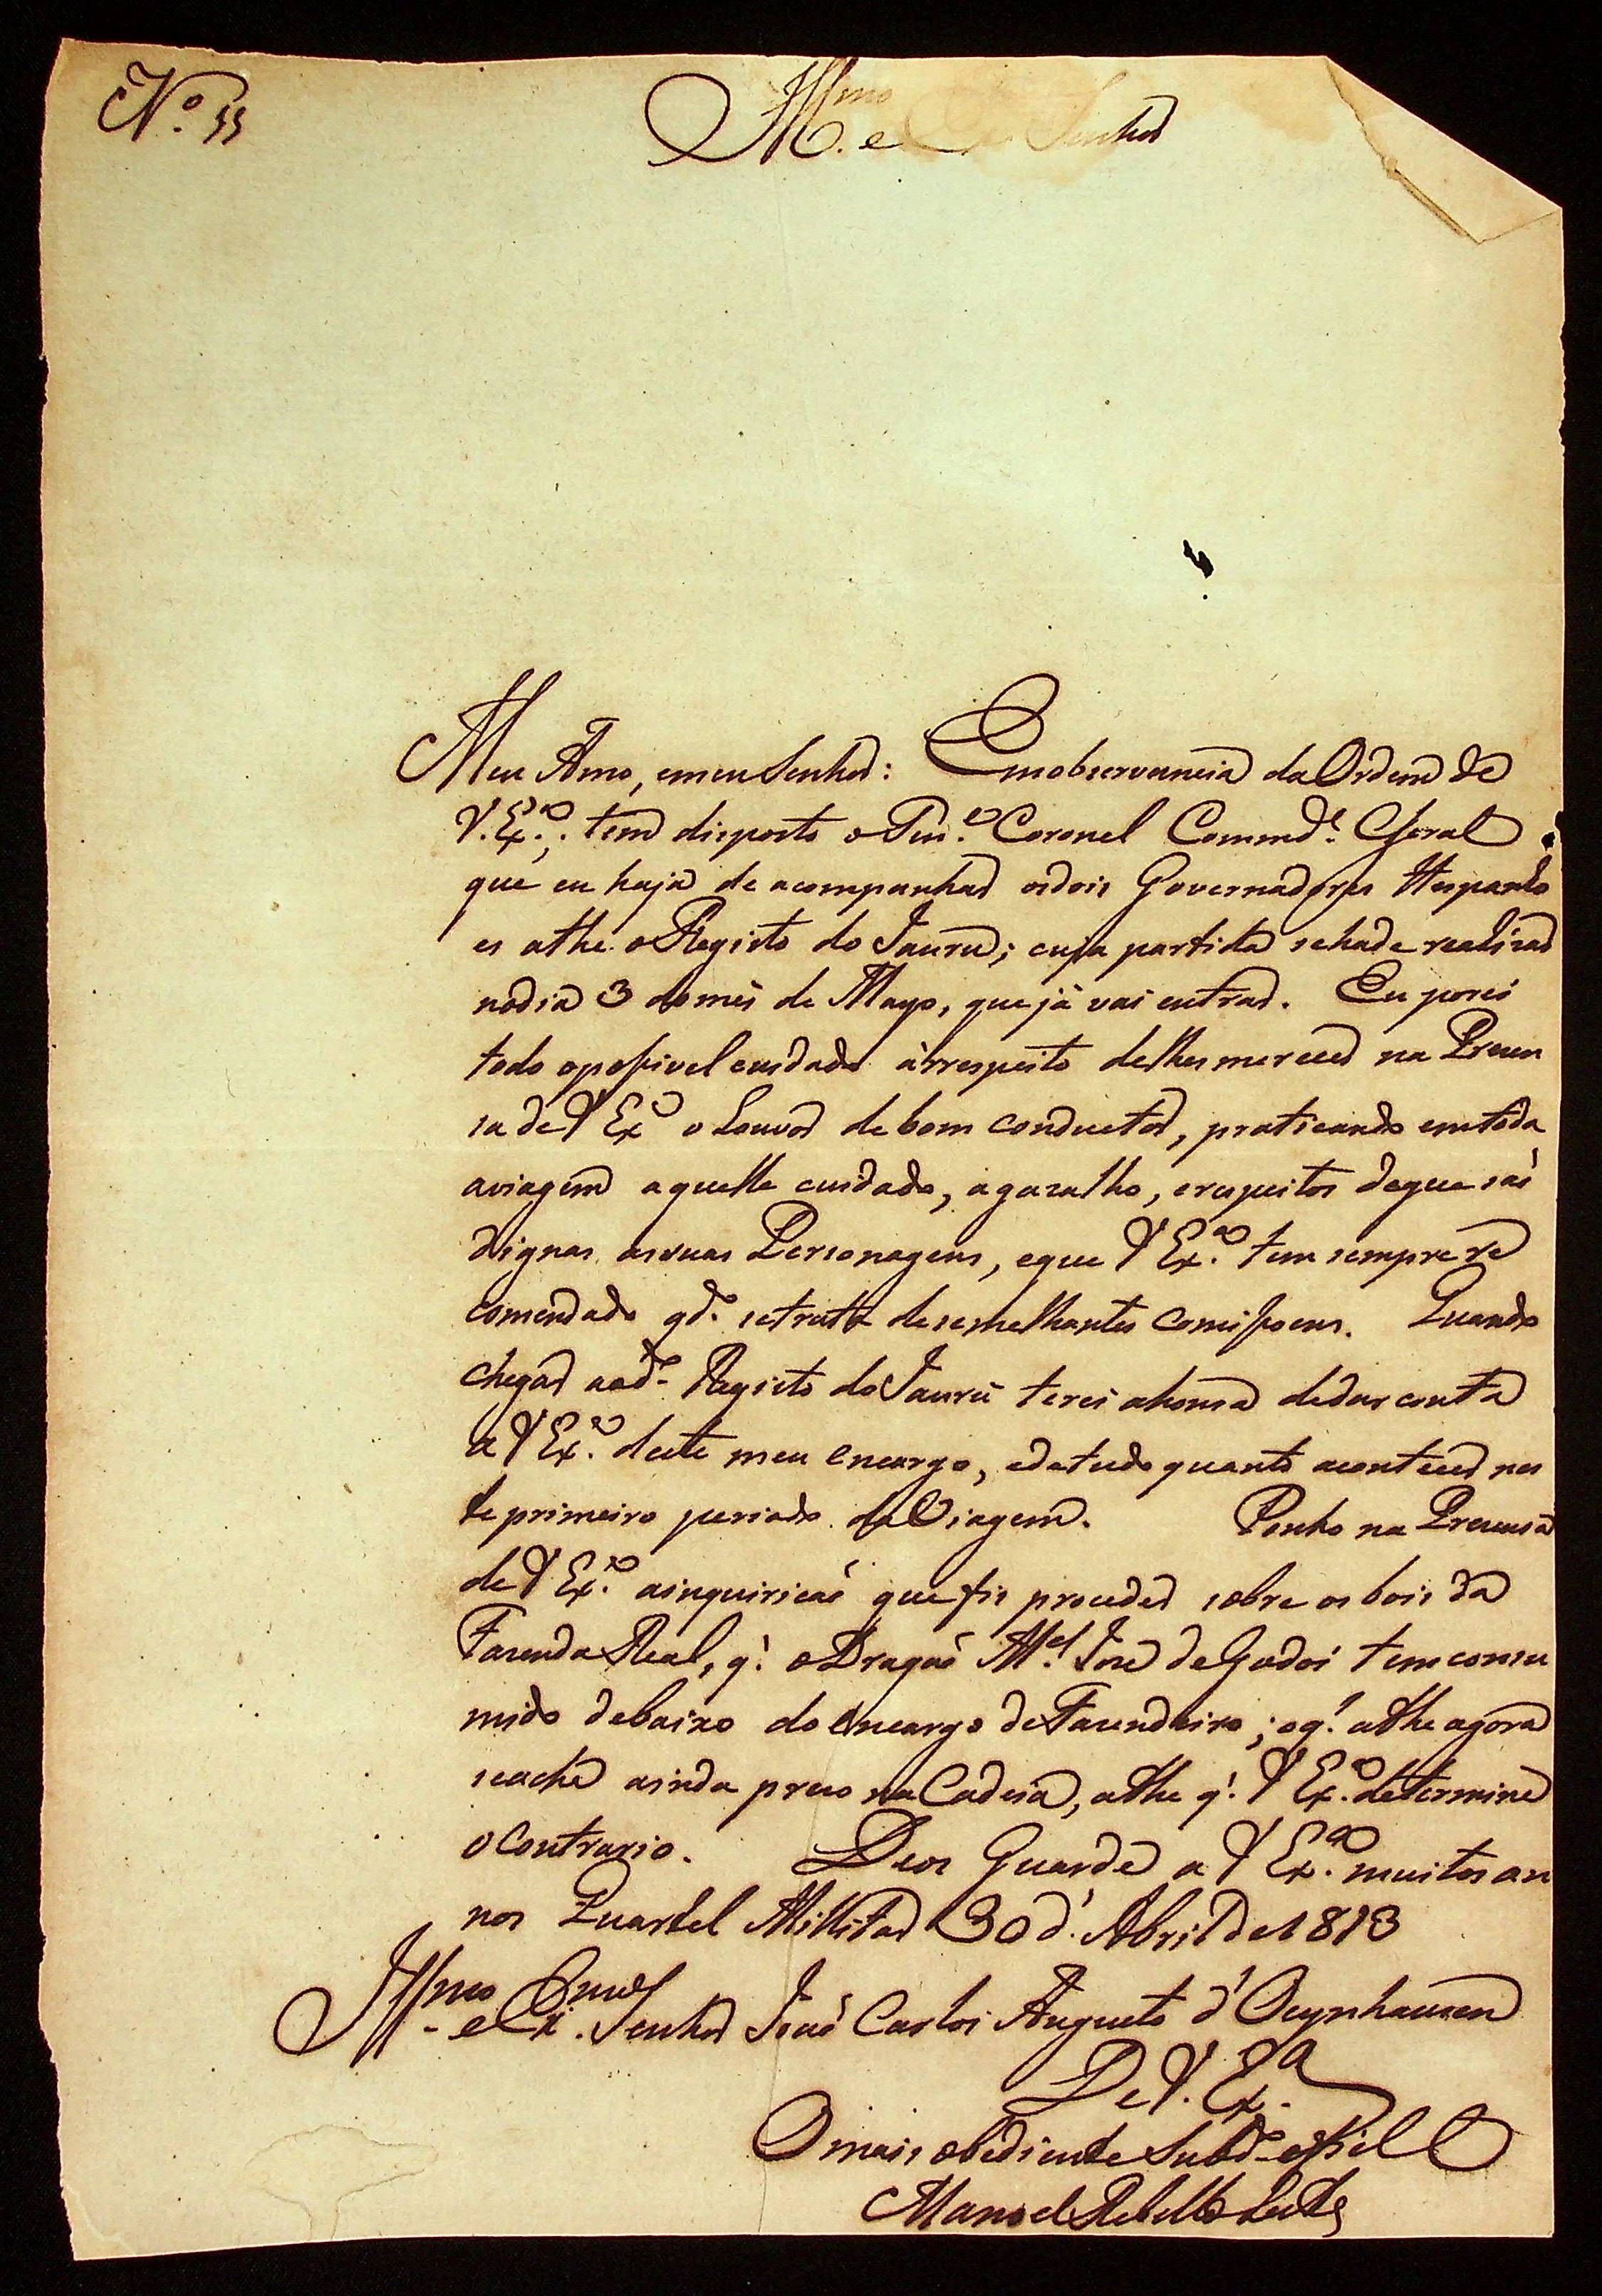 N.º 55
Ill.mo e Ex Senhor
Meu Amo, emeu Senhor: Emobservancia da Ordem de
V. Ex.ª, tem disposto o Ten.e Coronel Commd.e Geral
que eu haja de acompanhar osdois Governadores Hespanho
es athe o Registo do Jauru; cuja partida sehade realizar
nodia 3 do mês de Mayo, que já vai entrar. Eu porei
todo opossivel cuidado àrrespeito delhes merecer na Presen
sa de V Exª o Louvor de bom conductor, praticando emtoda
aviagem aquelle cuidado, agazalho, erespeitos deque sáo
dignas assuas Personagens, eque V Ex.ª tem sempre re
comendado qd.º setrata desemelhantes comissoens. Quando
chegar aod.º Registo do Jaurú terei ahonra dedar conta
a V Ex.ª deste meu encargo, edetudo quanto acontecer nes
te primeiro periodo da Viagem. Ponho na Presensa
de V Ex.ª ainquiricáo que fis proceder sobre os bois da
Fazenda Real, q.' o Dragaó M.el José de Godoi tem consu
mido debaixo do encargo de Fazendeiro; oq.' athe agora
seacha ainda prezo na Cadeia, athe q.' V Ex.ª determine
o Contrario. Deos Guarde a V Ex.ª muitos an
nos Quartel Millitar 30 d' Abril de 1813
Ill.mo e Ex.mo Senhor Joaó Carlos Augusto d' Oeynhausen
De V. Ex.ª
O mais obediente Subd.º e fiel
Manoel Rebello Leite